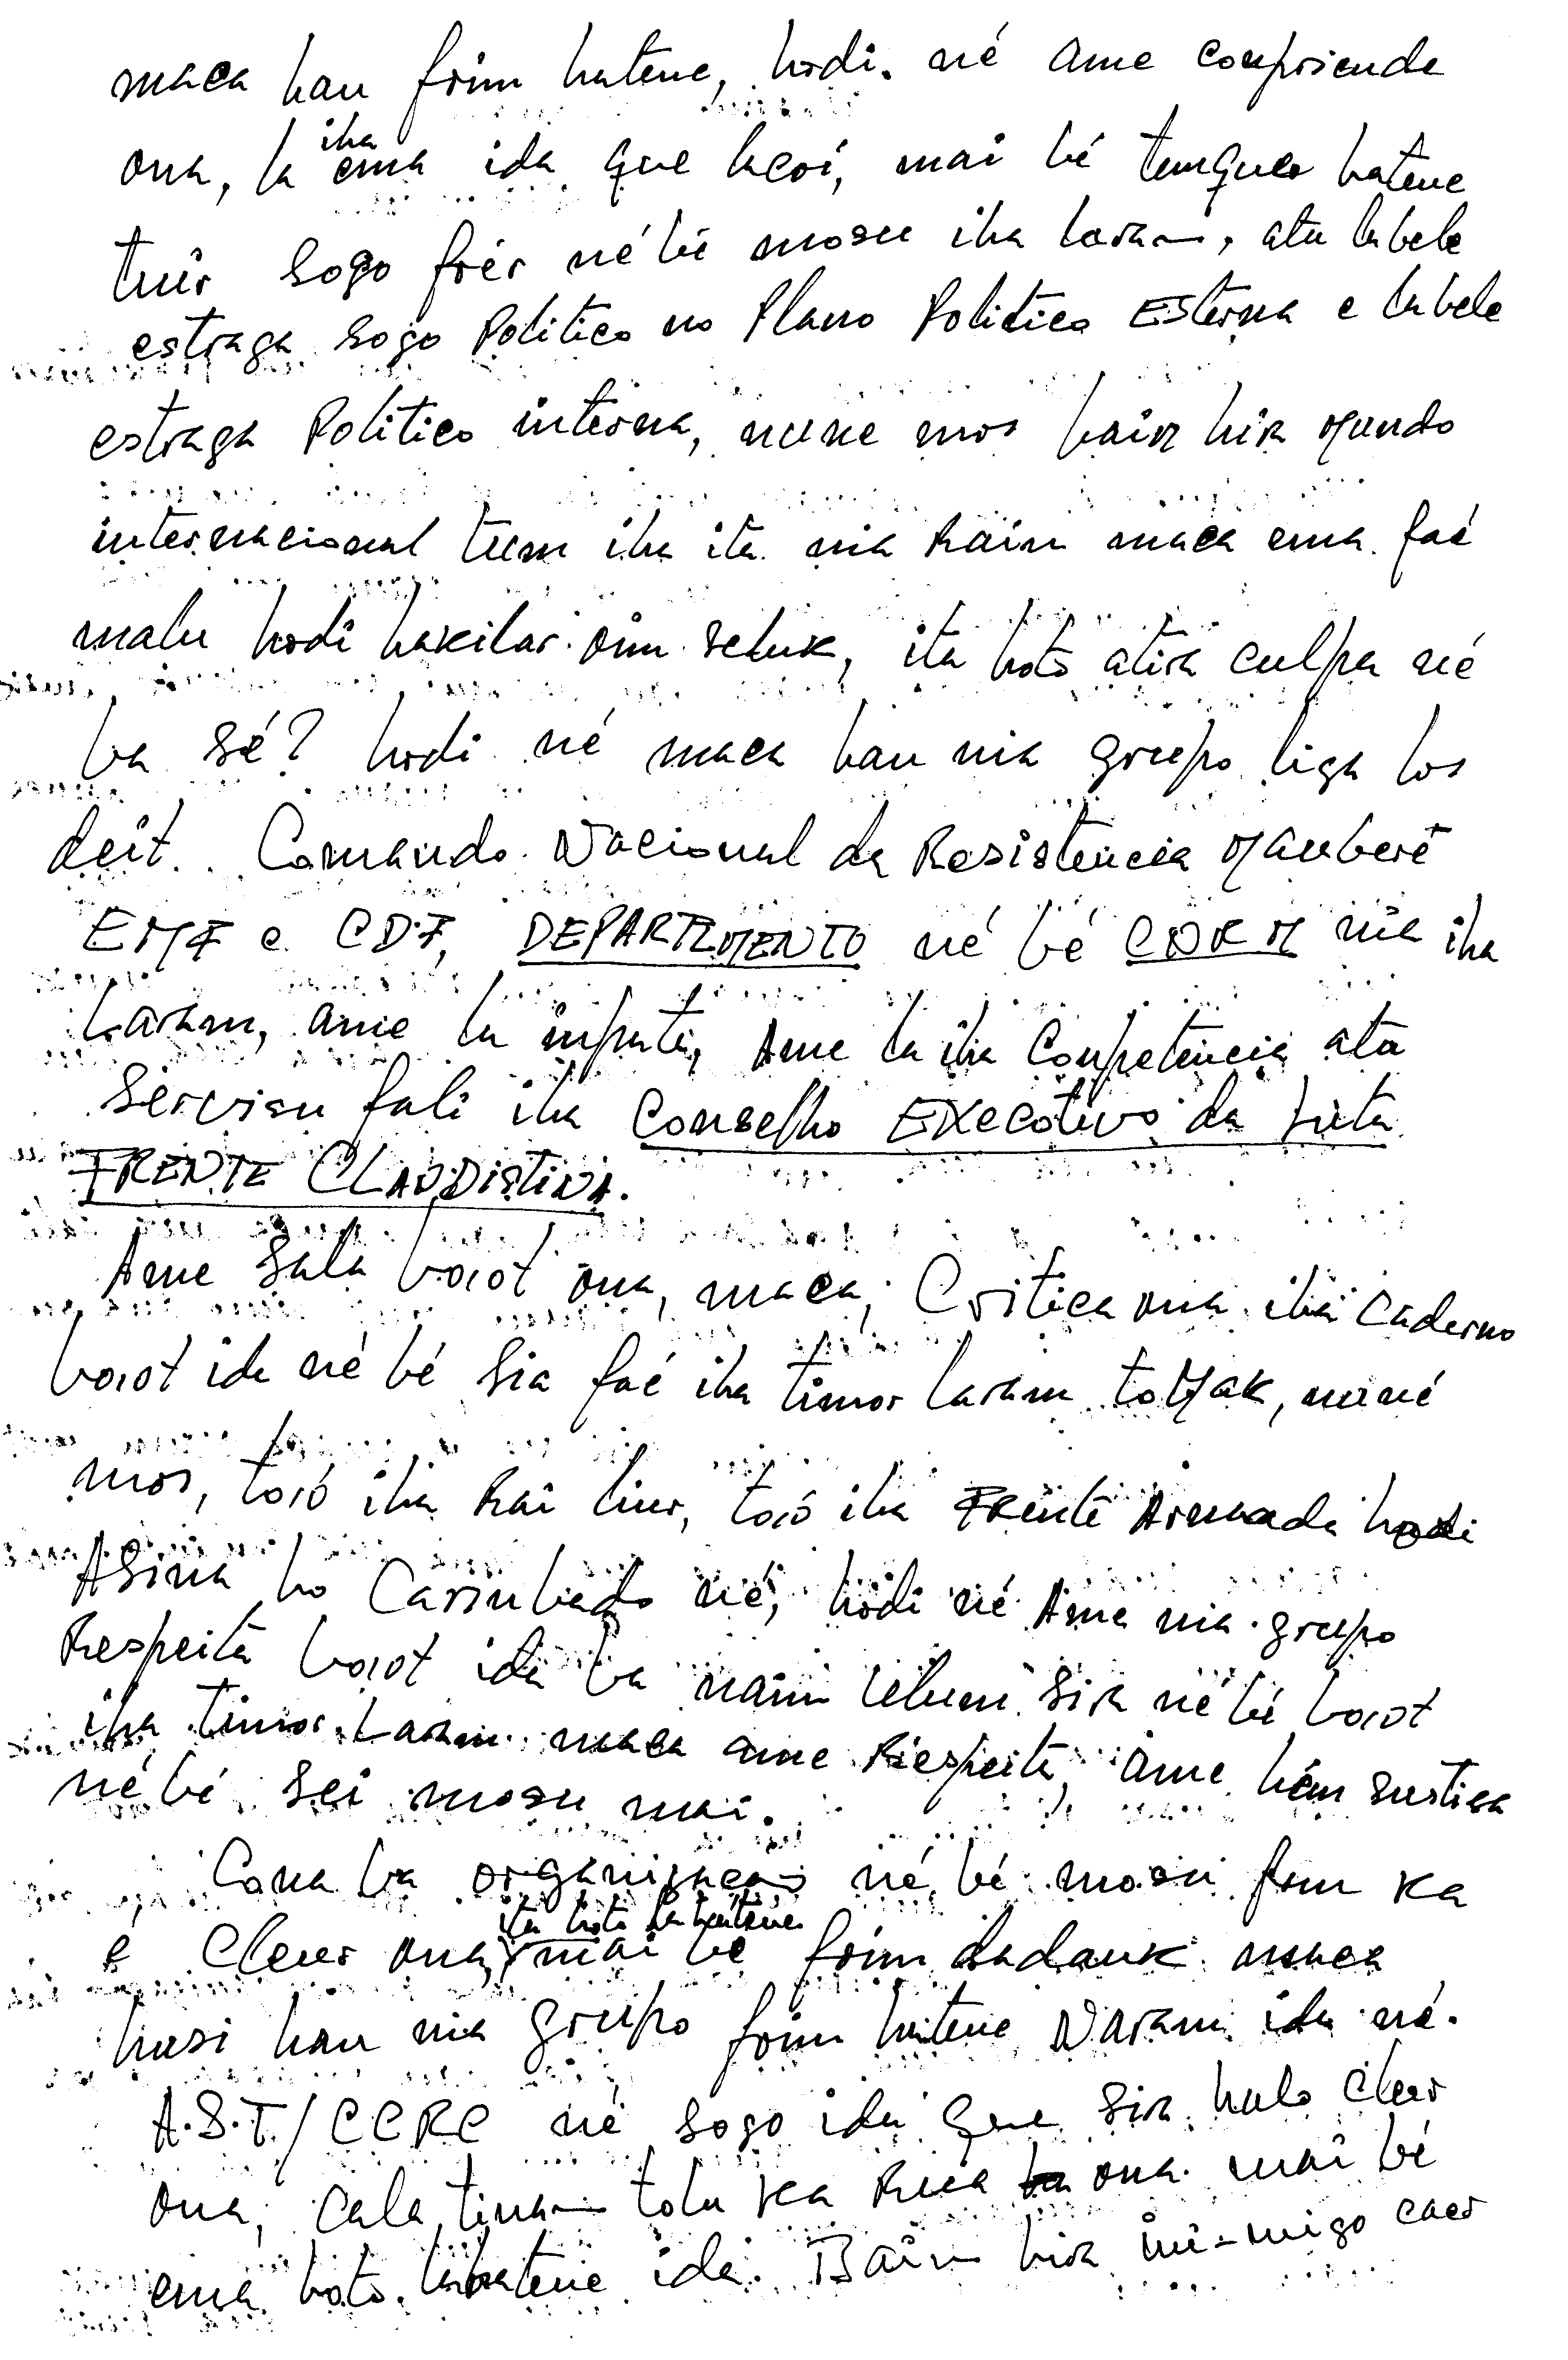 maca hau foim hatene, hodi. né ame compriende
ona, la iha ema ida que hcoí, mai bé tenquer hatene
tuir sogo foér né bé mosu iha laran, atu labele
estraga sogo Politico no Plano Politico Esterna e labele
estraga Politico interna, nune mos bain hira Mundo
internacional tuur iha ita nia Rain maca ema faé
malu hodi hakilar oin seluk, ita hoto atira culpa né
ba sé? hodi né maca hau nia grupo liga los
deit. Comando Nacional da Resistencia Mauberé
EMF e CDF, DEPARTMENTO né bé CNRM nia iha
Laran, ame la inputa, Ame la iha Competencia atu
Servisu fali iha Conselho EXecótivo da Luta
FRENTE CLANDistiNA.
Ame Sala boiot ona, maca, Critica ona iha Caderno
boiot ida né bé Sia faé iha timor laran toMak, nuné
mos, toió iha Rai liur, toió iha FRente Armada hodi
ASina ho Carimbado né, hodi né Ame nia grupo
Respeita boiot ida ba nain Ulum Sira né bé boiot
iha timor Laran maca ame Respeita, ame hein Sustica
né bé sei mosu mai.
Cona ba organizacao né bé mosu foin ka
é Cleur ona, ita hoto la hatene mai bé foin dadauk maca
husi hau nia grupo foin hatene Naran ida né.
A.S.T./CCRC né sogo ida que Sira halo Cleur
ona, Cala tinan tolu ka Rua ona mai bé
ema hoto labatene ida. Bain hira ini-migo caer